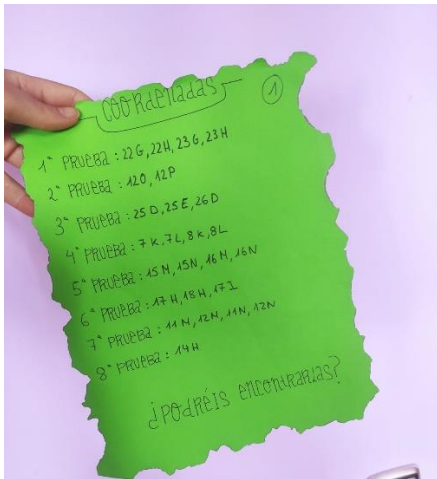 COORDENADAS
1
1ª PRUEBA: 22G, 22H, 23G, 23H
2ª PRUEBA: 12O, 12P
3ª PRUEBA: 25D, 25E, 26D
4ª PRUEBA: 7K, 7L, 8K, 8L
5ª PRUEBA: 15M, 15N, 16M, 16N
6ª PRUEBA: 17H, 18H, 17I
7ª PRUEBA: 11M, 12M, 11N, 12N
8ª PRUEBA: 14H
¿PODRÉIS ENCONTRARLAS?